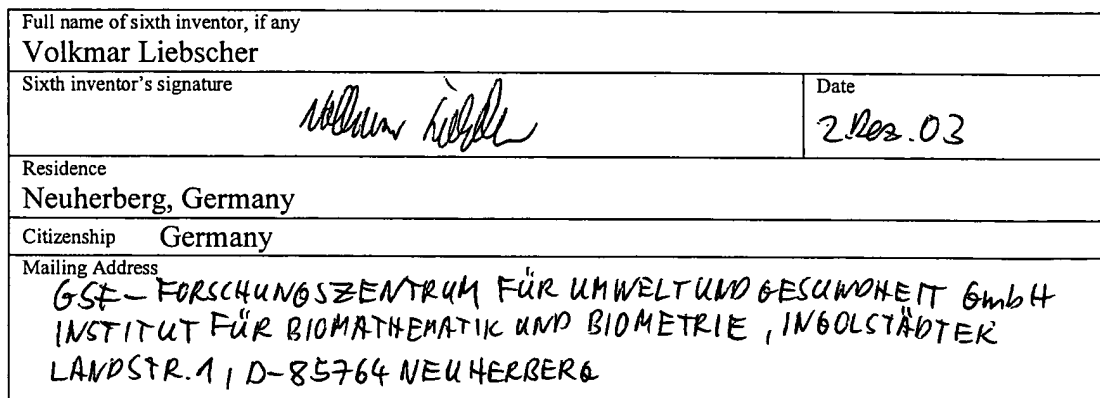 Full name of sixth inventor, if any
Volkmar Liebscher
Sixth inventor's signature
Volkmar Liebscher
Date
2. Dez. 03
Residence
Neuherberg, Germany
Citizenship Germany
Mailing Address
GSF - FORSCHUNGSZENTRUM FÜR UMWELT UND GESUNDHEIT GmbH
INSTITUT FÜR BIOMATHEMATIK UND BIOMETRIE, INGOLSTÄDTER
LANDSTR. 1, D-85764 NEUHERBERG